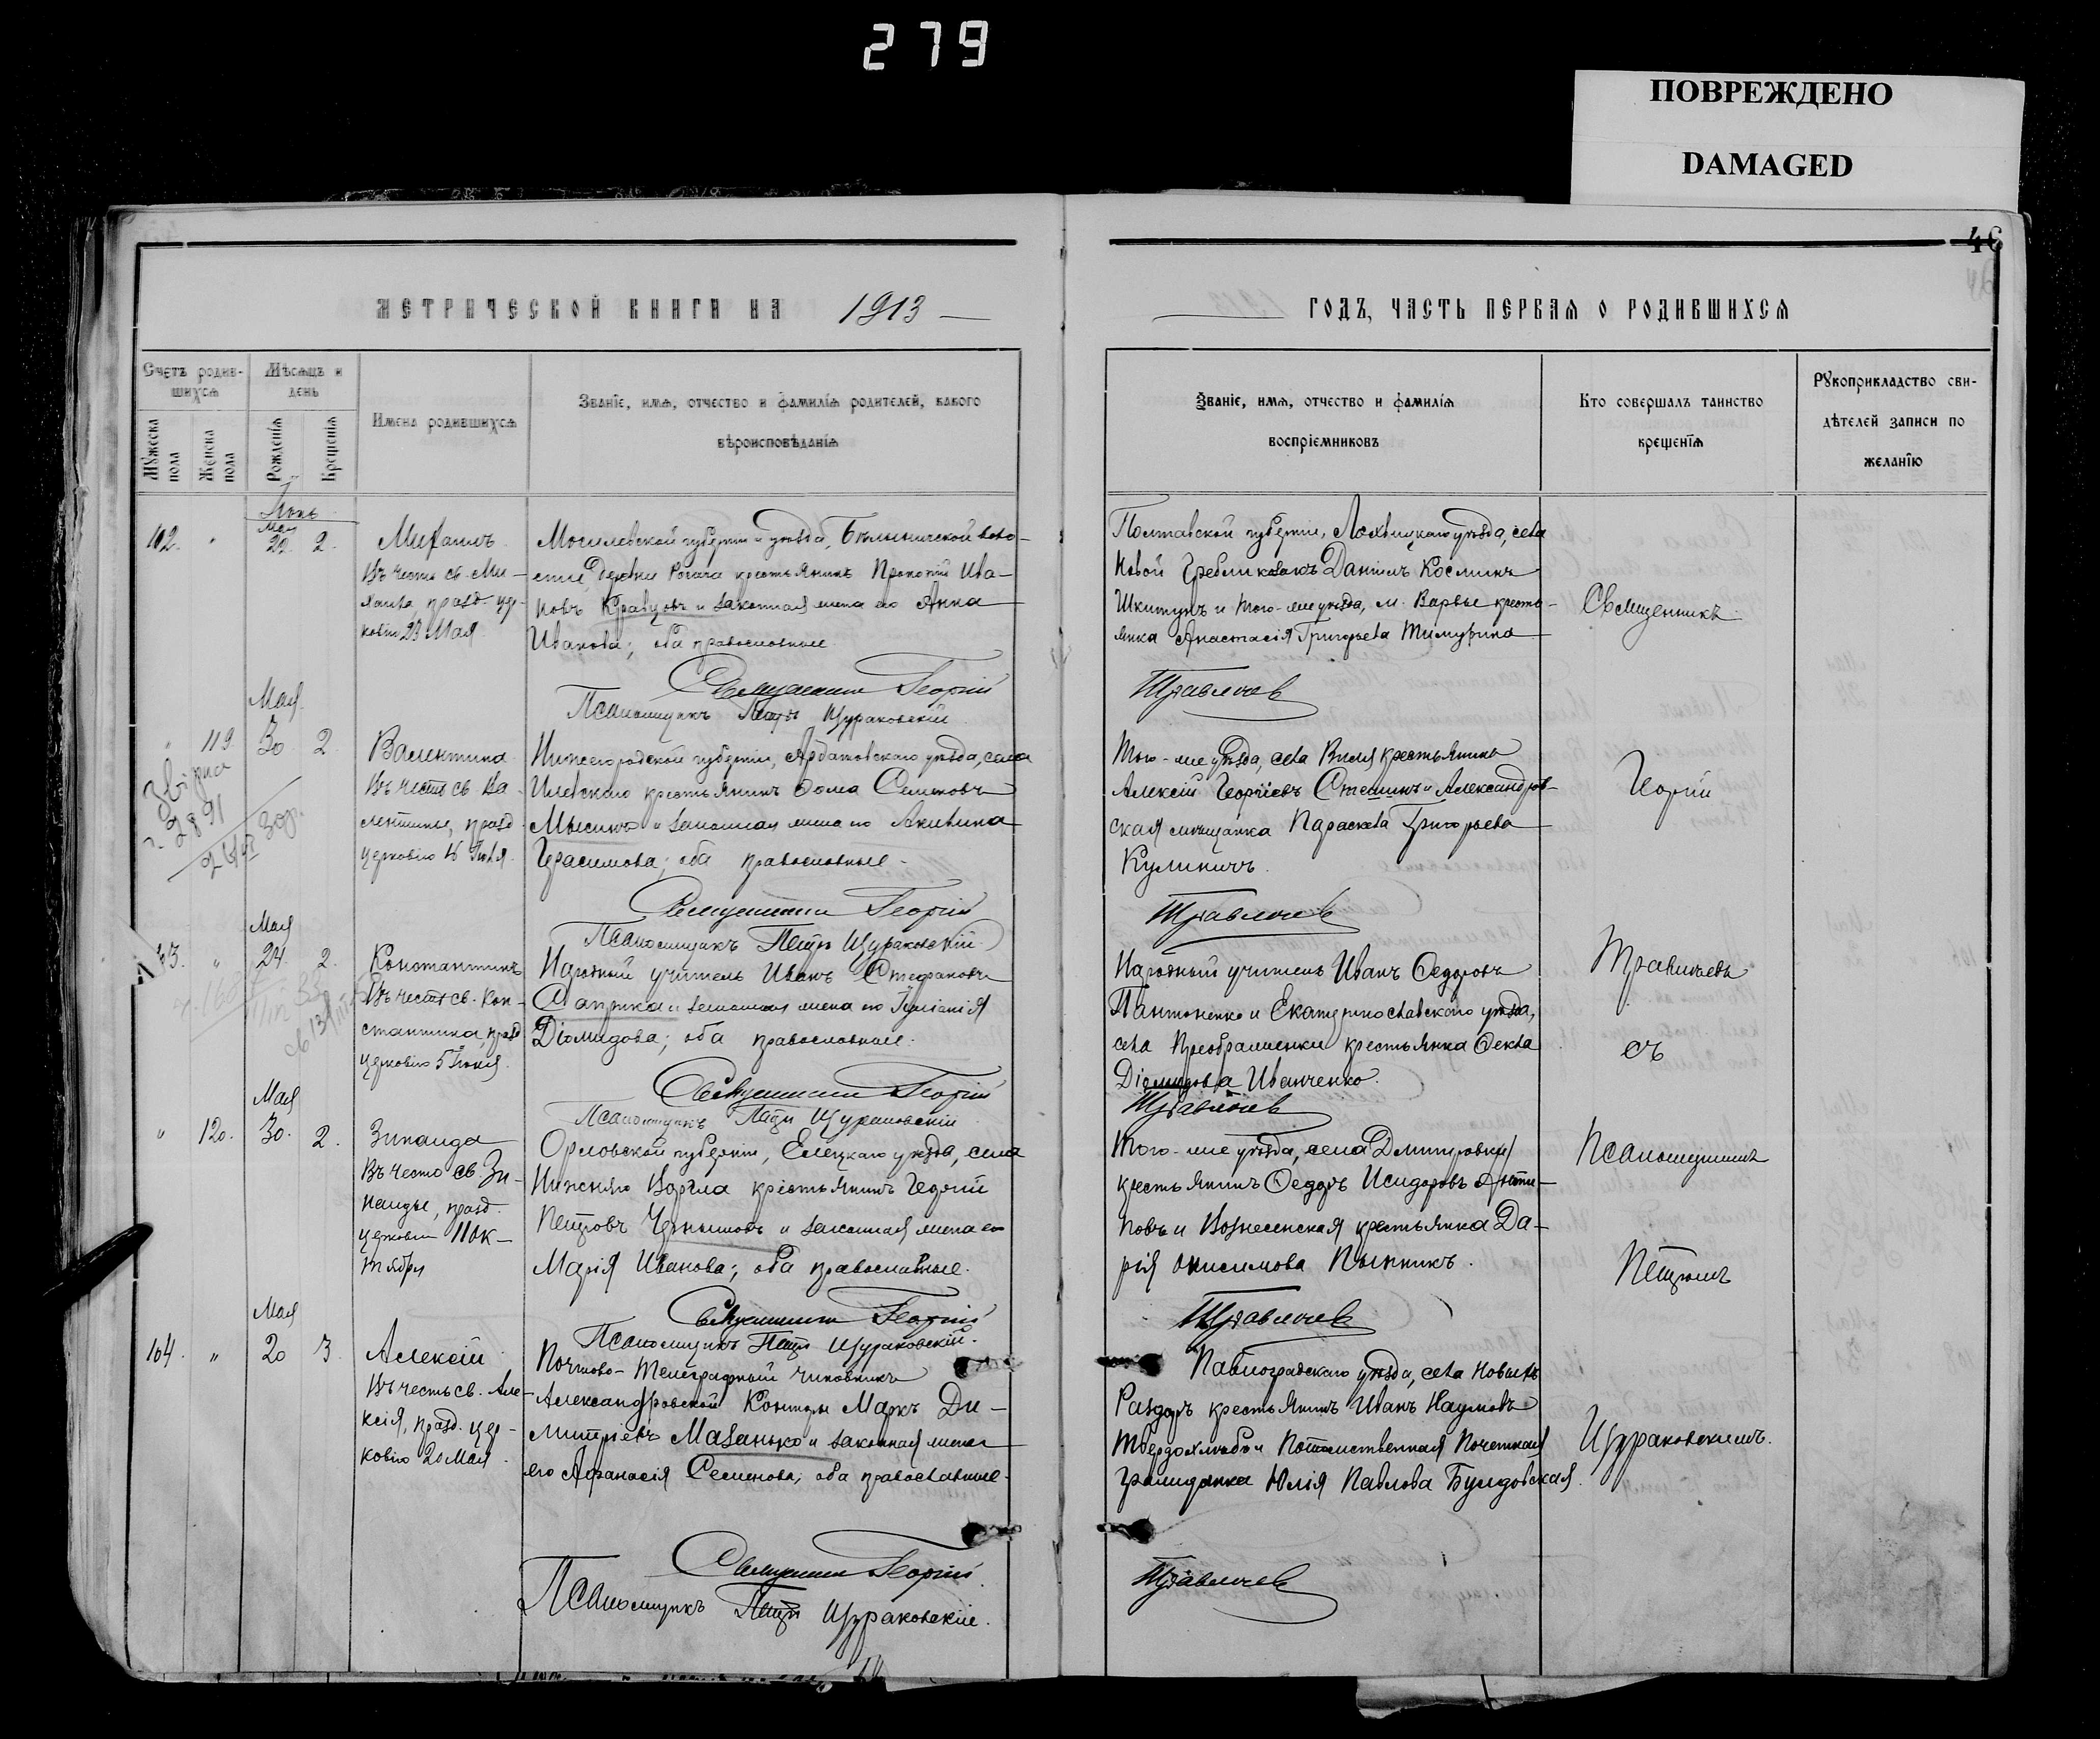 279
ПОВРЕЖДЕНО
DAMAGED
46
МЕТРИЧЕСКОЙ КНИГИ НА 1913
ГОДЪ, ЧАСТЬ ПЕРВАЯ О РОДИВШИХСЯ
Счетъ родив-
шихся
Мужеска пола
Женска пола
Мѣсяцъ и
день
Рожденія
Крещенія
Имена родившихся
Званіе, имя, отчество и фамилія родителей, какого
вѣроисповѣданія
Званіе, имя, отчество и фамилія
воспріемниковъ
Кто совершалъ таинство
крещенія
Рукоприкладство сви-
дѣтелей записи по
желанію
Іюнь
Мая
102. " 29. 2.
Михаилъ
Въ честь св. Ми-
хаила, празд. цер-
ковію 23 Мая
Могилевской губерніи и уѣзда, Бѣлыничской воло-
сти, деревни Рогача крестьянинъ Прокопій Ива-
новъ Кравцовъ и законная жена его Анна
Иванова; оба православные
Священникъ Георгій
Псаломщикъ Петръ Щураковскій
Полтавской губерніи, Лохвицкаго уѣзда, села
Новой Гребли козакъ Даніилъ Косминъ
Шкитунъ и того-же уѣзда, м. Варвы кресть-
янка Анастасія Григорьева
Травлочев
Священникъ
Мая
" 119. 30. 2.
Валентина
Въ честь св. Ва-
лентины, празд.
церковію 16 Іюля.
Нижегородской губерніи, Ардатовскаго уѣзда, села
крестьянинъ Ѳома Семеновъ
Мысинъ и законная жена его Акилина
Герасимова; оба православные.
Священникъ Георгій
Псаломщикъ Петръ Щураковскій.
Того-же уѣзда, села Виля крестьянинъ
Алексій Георгіевъ и Александров-
ская мѣщанка Параскева Григорьева
Куличичъ.
Георгій
Мая
" 24. 2.
Константинъ
Въ честь св. Кон-
стантина, празд.
церковію 5 Іюня.
Народный учитель Иванъ Стефановъ
и законная жена его Іуліанія
Діомидова; оба православные.
Священникъ Георгій
Псаломщикъ Петръ Щураковскій
Народный учитель Иванъ Ѳедоровъ
Пантоненко и Екатеринославскаго уѣзда,
села Преображенки крестьянка Ѳекла
Діомидова Иванченко.
съ
Мая
" 120. 30. 2.
Зинаида
Въ честь св. Зи-
наиды, празд.
церковію 11 Ок-
тября
Орловской губерніи, Елецкаго уѣзда, села
Нижняго Воргла крестьянинъ Георгій
Петровъ Чернышовъ и законная жена его
Марія Иванова; оба православные.
Священникъ Георгій
Псаломщикъ Петръ Щураковскій.
Того-же уѣзда, села Дмитровки
крестьянинъ Ѳедоръ Исидоровъ Анти-
повъ и Вознесенская крестьянка Да-
рія Онисимова
Псаломщикомъ
Петромъ
Мая
104. " 20 3.
Алексій
Въ честь св. Але-
ксія, празд. цер-
ковію 20 Мая.
Почтово-Телеграфный чиновникъ
Александровской Конторы Маркъ Ди-
митріевъ Мазанько и законная жена
его Аѳанасія Семенова; оба православные.
Священникъ Георгій
Псаломщикъ Петръ Щураковскій.
Павлоградскаго уѣзда, села Новыхъ
Раздоръ крестьянинъ Иванъ Наумовъ
Твердохлѣбъ и Потомственная Почетная
гражданка Юлія Павлова
Щураковскимъ.